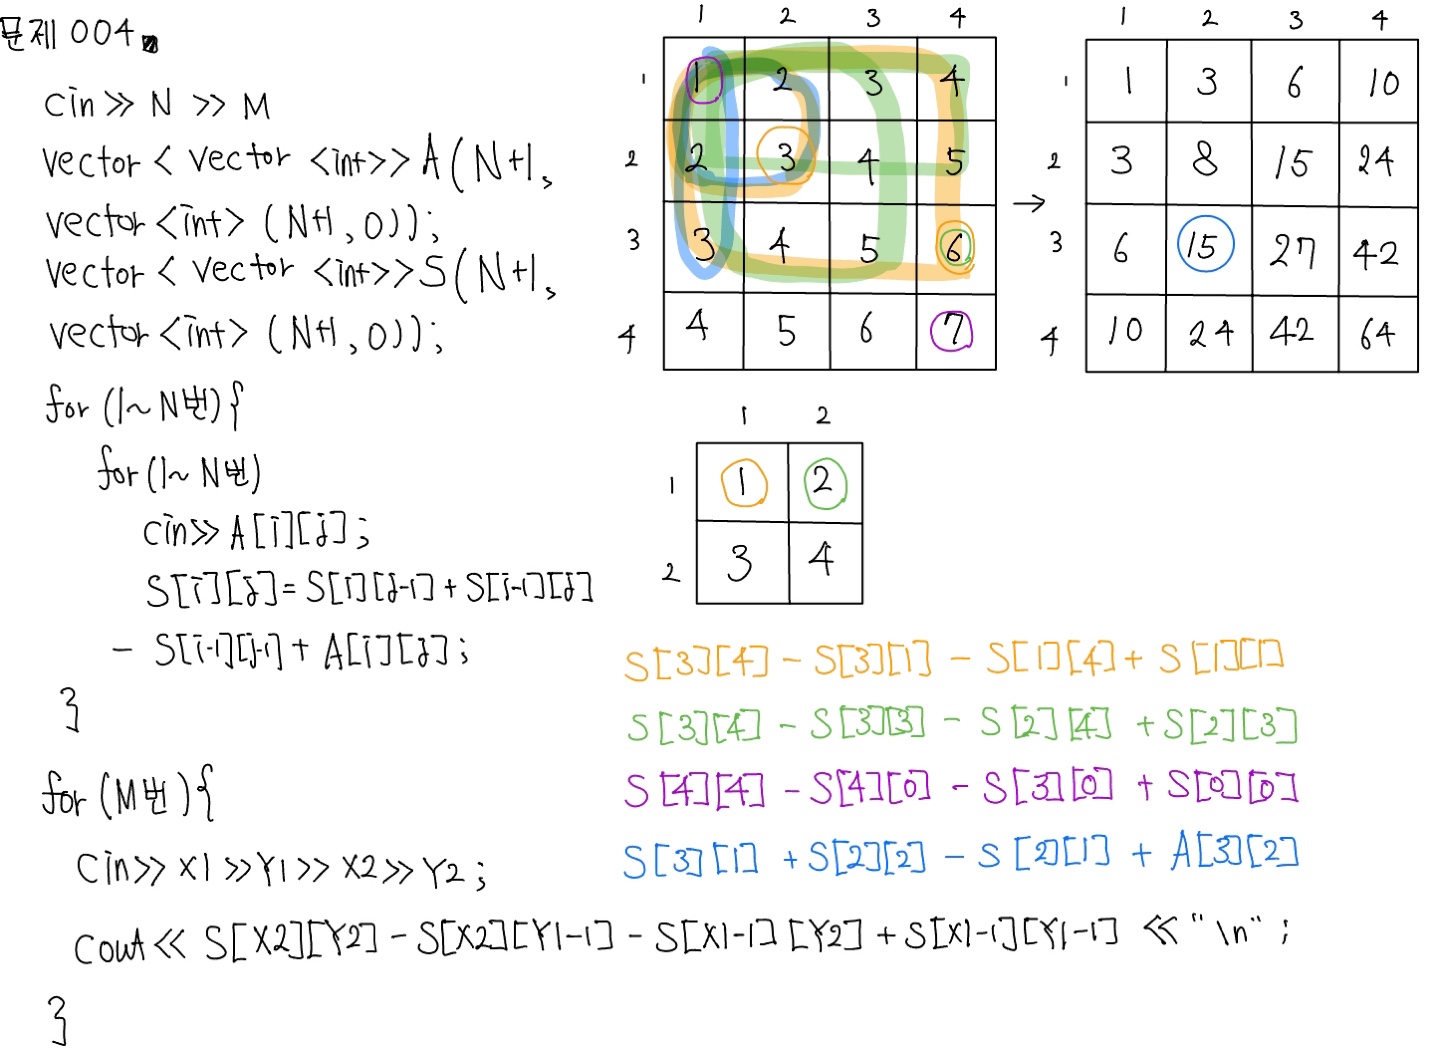 문제 004.
cin >> N >> M
vector < vector <int>> A(N+1,
vector <int> (N+1, 0));
vector < vector <int>> S(N+1,
vector <int> (N+1, 0));
for (1~N번) {
for (1~N번)
cin >> A[i][j];
S[i][j] = S[i][j-1] + S[i-1][j]
- S[i-1][j-1] + A[i][j];
}
for (M번) {
cin >> X1 >> Y1 >> X2 >> Y2;
cout << S[X2][Y2] - S[X2][Y1-1] - S[X1-1][Y2] + S[X1-1][Y1-1] << "\n";
}
1 2 3 4
1 1 2 3 4
2 2 3 4 5
3 3 4 5 6
4 4 5 6 7
→
1 2 3 4
1 1 3 6 10
2 3 8 15 24
3 6 15 27 42
4 10 24 42 64
1 2
1 1 2
2 3 4
S[3][4] - S[3][1] - S[1][4] + S[1][1]
S[3][4] - S[3][3] - S[2][4] + S[2][3]
S[4][4] - S[4][0] - S[3][0] + S[0][0]
S[3][1] + S[2][2] - S[2][1] + A[3][2]